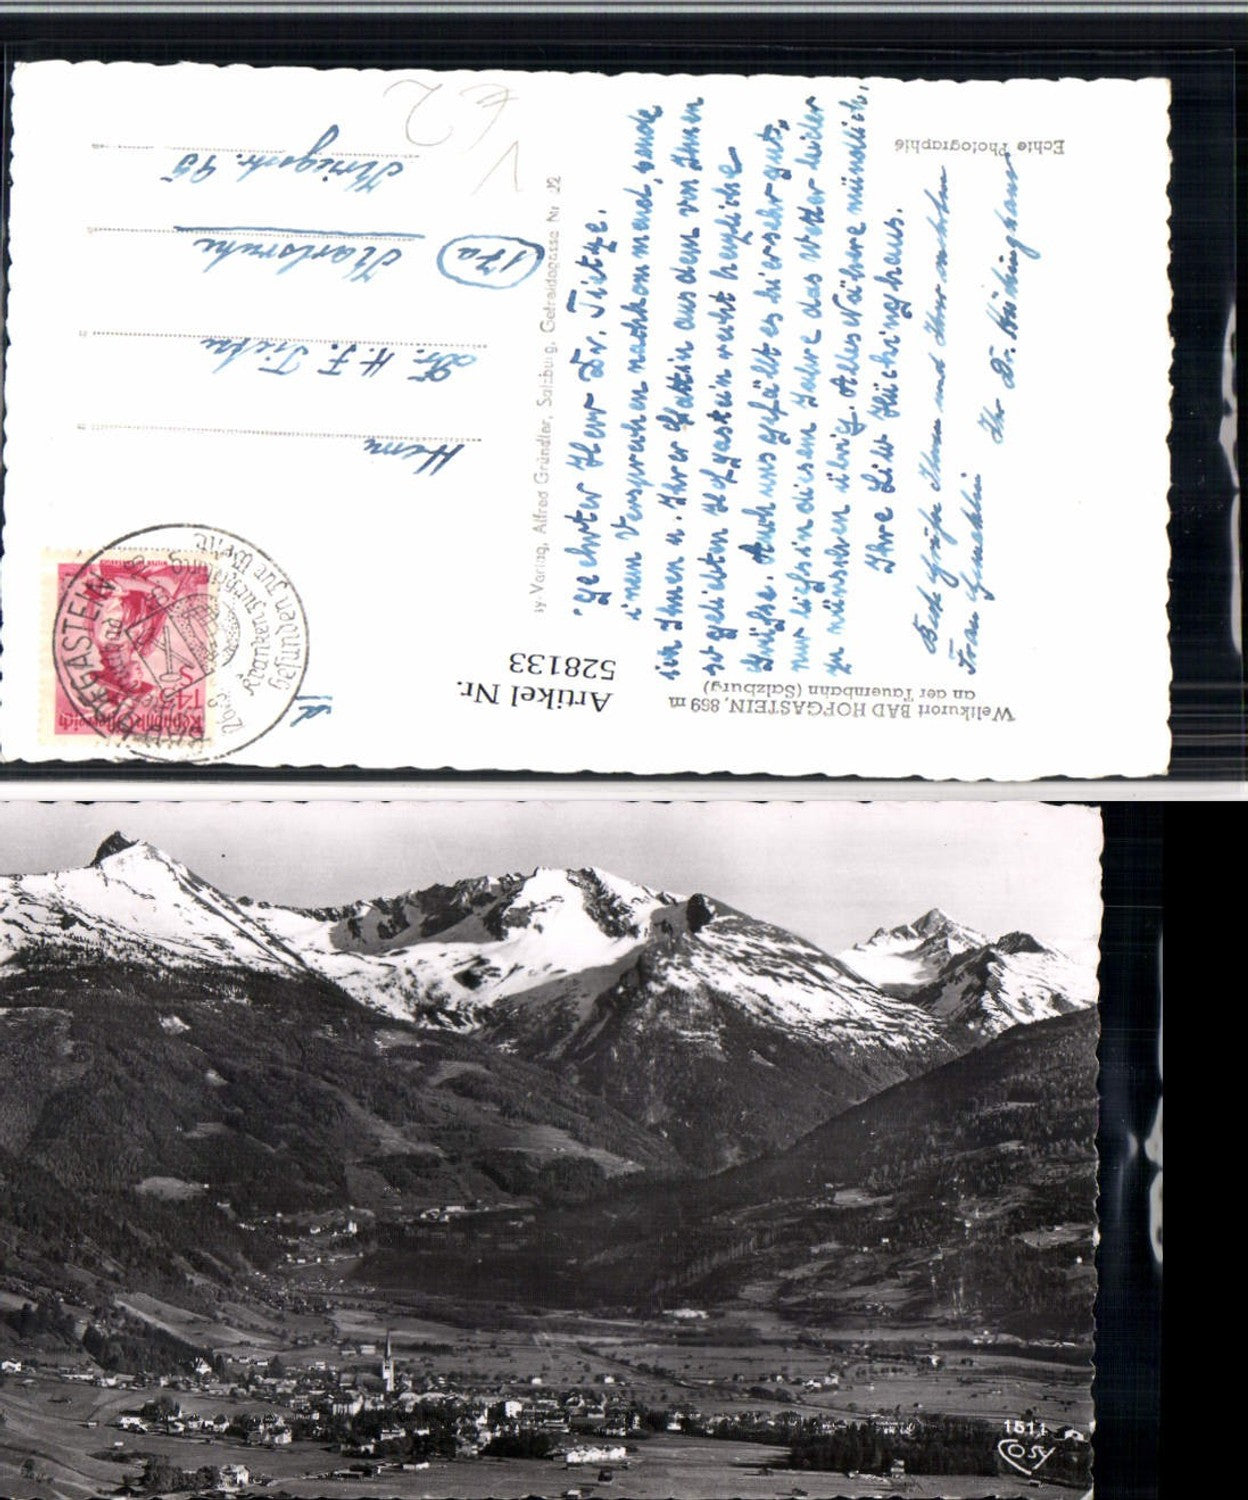 Weltkurort BAD HOFGASTEIN, 869 m
an der Tauernbahn (Salzburg)
Echte Photographie
Artikel Nr.
528133
Verlag, Alfred Gründler, Salzburg, Getreidegasse Nr. 22
geehrter Herr Dr. Tietze.
Versprechen nachkommend, sende
ich Ihnen u. Ihrer Gattin aus dem von Ihnen
so geliebten Hofgastein recht herzliche
Grüße. Auch uns gefällt es hier sehr gut,
nur läßt in diesem Jahre das Wetter leider
zu wünschen übrig. Alles Nähere mündlich.
Ihre Lilo Hüchinghaus.
Beste Grüße Ihnen und Ihrer verehrten
Frau Gemahlin
Ihr Dr. Hüchinghaus
Herrn
Dr. H. F. Tietze
17a
Karlsruhe
Kriegsstr. 95
€ 2
V
Republik Österreich
S 1.45
HOFGASTEIN
Gesunden zur Wehr
Kranken zur Heilung
1511
COSY